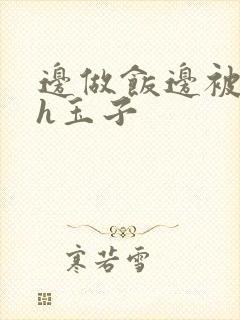 邊做飯邊被
h玉子
寒若雪